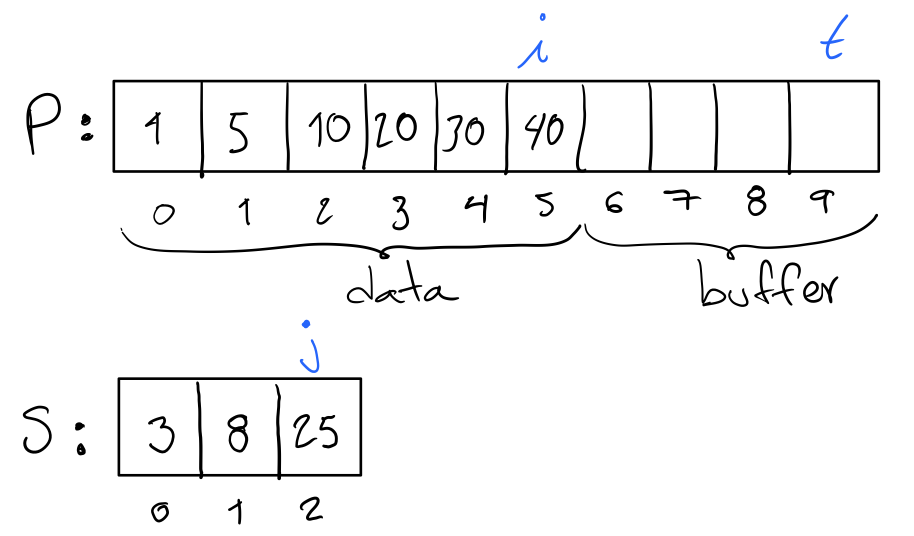 i t
P: 1 5 10 20 30 40
0 1 2 3 4 5 6 7 8 9
data buffer
j
S: 3 8 25
0 1 2